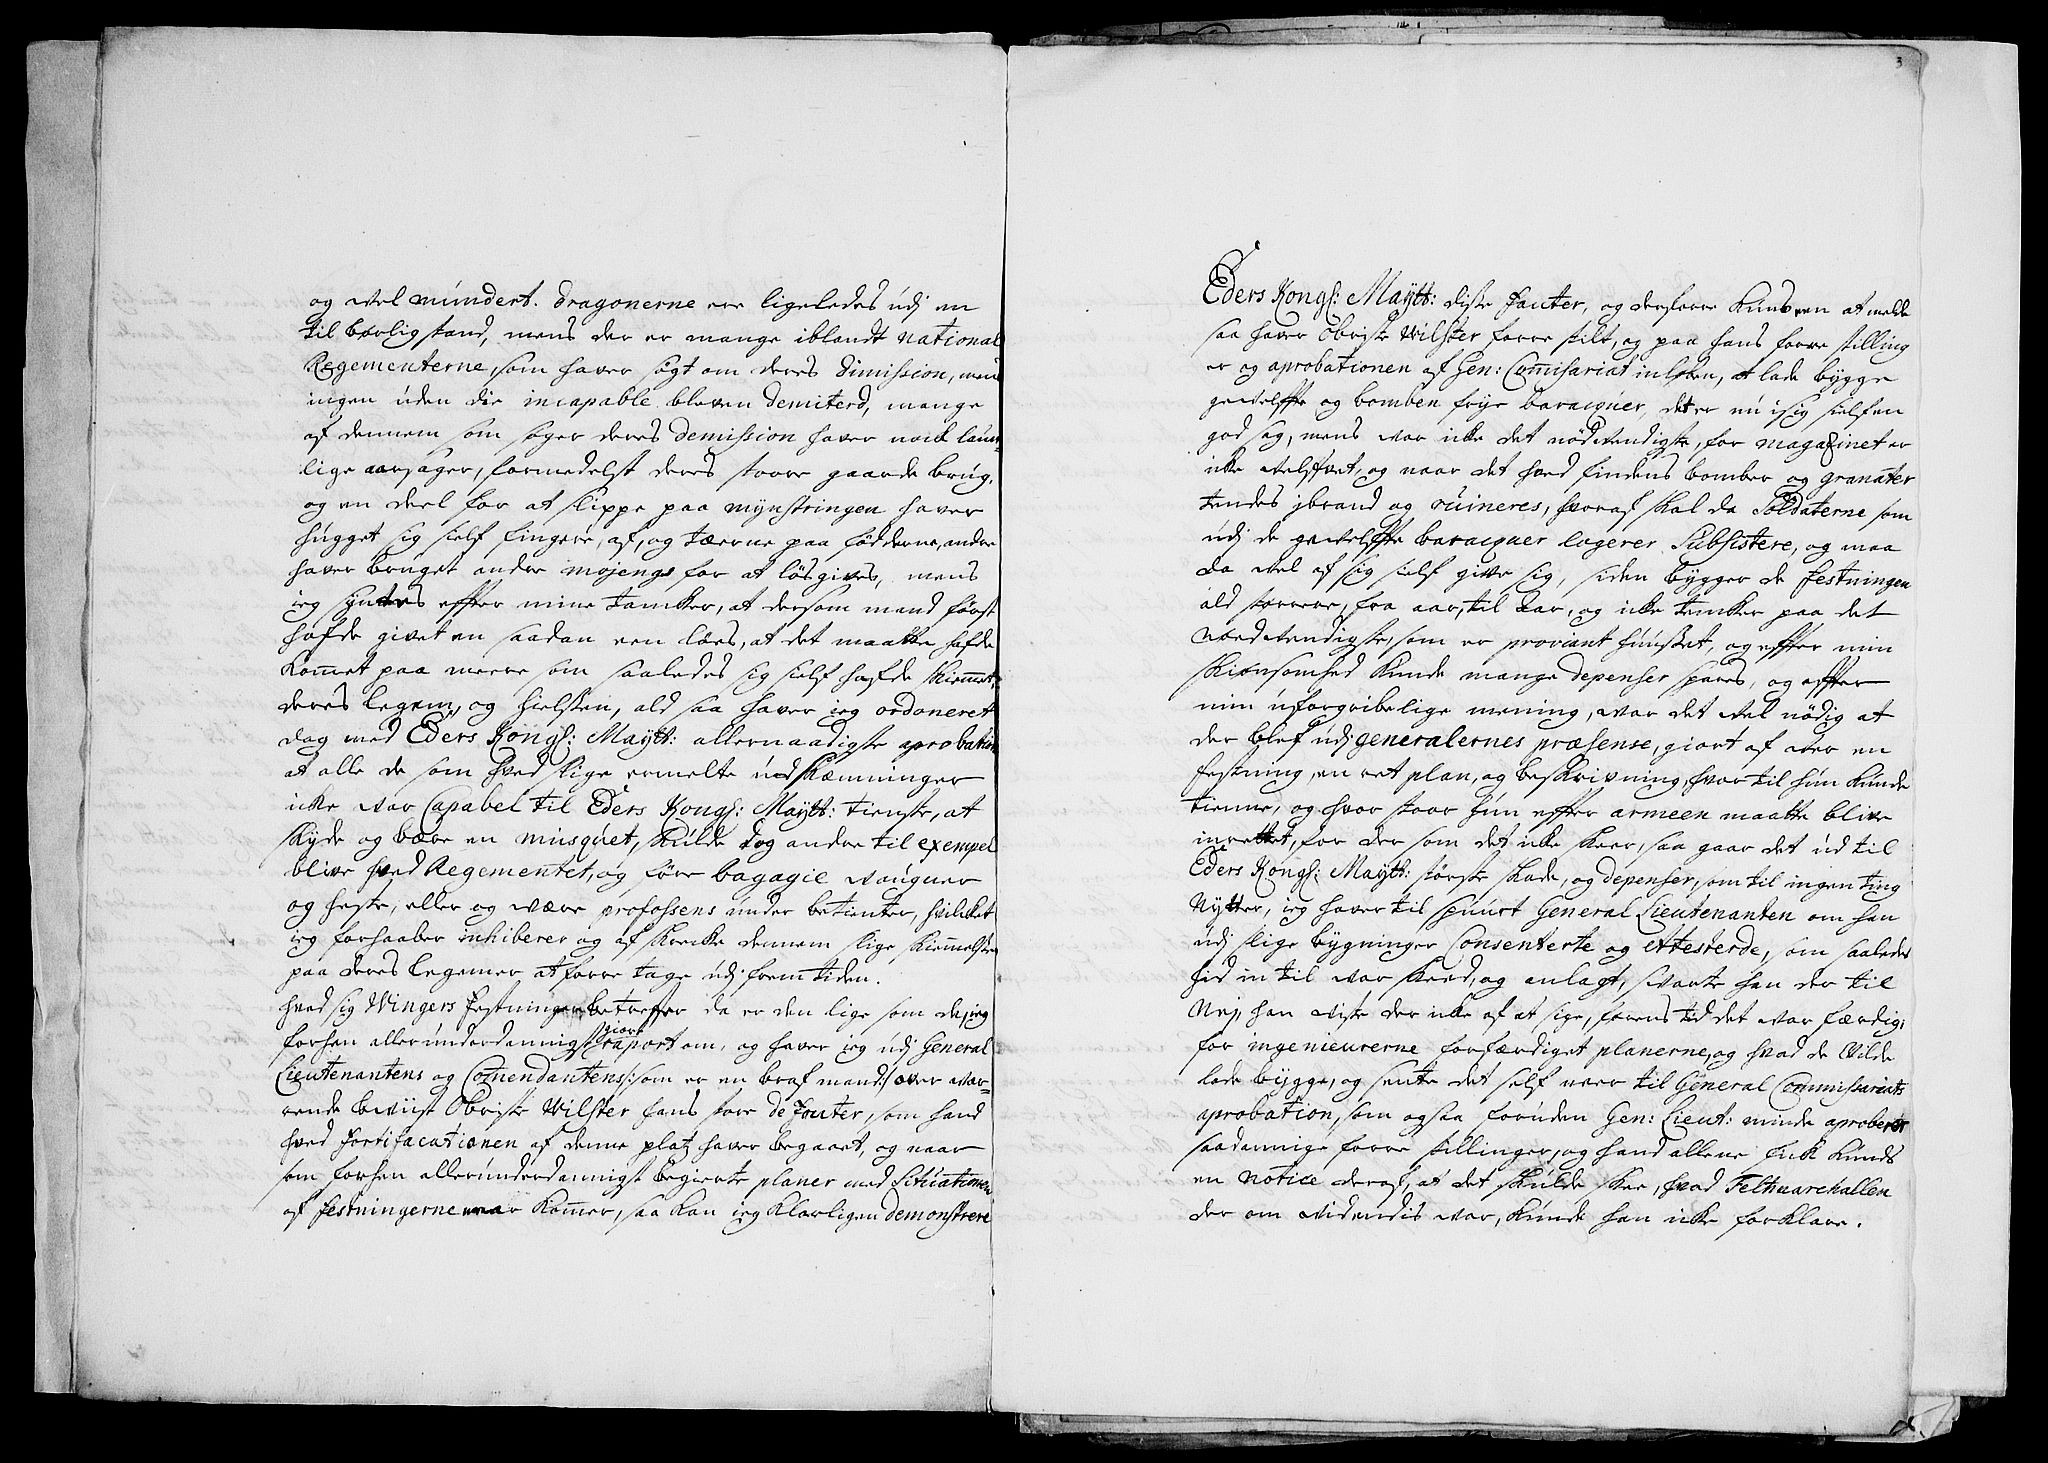 og vel mundert. dragonerne ere ligeledes udj en
til børlig stand, mens der er mange iblandt national
Regementerne, som haver søgt om deres Dimission, men
ingen uden die incapable bleven demiterd, mange
af dennem som søger deres demission haver nock laum-
lige aarsager, formedelst deres store gaarde brug,
og en deel for at slippe paa mynstringen haver
hugget sig self fingere, af, og tæerne paa fødderne, andre
haver bruget andre mojengs for at løsgives, mens
jeg syntes effter mine tancker, at dersom mand først
hafde givet en saadan een læres, at det maatte hafde
kom̄et paa meere som saaledes sig self hafde skiem̄et,
deres legem, og hielsen, ald saa haver jeg ordoneret
dog med Eders Kongl: Maytt: allernaadigste aprobation
at alle de som hved slige ermelte udskæmninger
icke var Capabel til Eders Kongl: Maytt: tienste, at
skyde og bære en musquet, skulde dog andre til exempel
blive hved Regementet, og føre bagagie vougner
og heste, eller og være profossens under betienter, hvilcket
jeg forhaaber inhiberer og af skrecke dennem slige skiemmelse
paa deres legemer at forre tage udj fremtiden.
hved sig Wingers festninger betreffer da er den lige som de, jeg
forhen allerunderdannigst giort raport om, og haver jeg udj General
Lieutenantens og Com̄endantens /: som er en braf mand :/ over vær-
rende beviist Obriste Wilster hans store de fauter, som hand
hved fortifacationen af denne platz haver begaaet, og naar
som forhen allerunderdannigst begierte planer med Situationen
af festningerne kom̄er, saa kan jeg klarligen demonstrere
3
Eders Kongl: Maytt: diste fauter, og dersforre kuns een at melde
saa haver Obriste Wilster forre stilt, og paa hans forre stilling
er og aprobationen af Gen: Com̄isariat inløben, at lade bygge
gevelffte og bomben frye baracquer, det er nu i sig sielfen
god sag, mens var icke det nødvendigste, for magazinet er
icke velffvet, og naar det hved findens bomber og granater
tendes j brand og ruineres, hvoraf skal da Soldaterne som
udj de gevelffte baracquer logerer Subsistere, og maa
da vel af sig sielf give sig, siden bygger de festningen
ald storrere, fra aar, til aar, og icke tencker paa det
nødvendigste, som er proviant huusset, og effter min
skiønsomhed kunde mange depenser spares, og effter
min uforgribelige mening, var det vel nödig at
der blef udj generalernes præsense, giort af over en
festning, en ret plan, og beskrivning, hvor til hun kunde
tienne, og hvor stoor hun effter armeen maatte blive
inrettet, for der som det icke skeer, saa gaar det ud til
Eders Kongl: Maytt: største skade, og depenser, som til ingen ting
nytter, jeg haver til spuurt General Lieutenanten om han
udj slige bygninger Consenterte og attesterde, som saaledes
hid in til var skeed, og anlagt, svarte han der til
Nej, han viste der icke af at sige, forens tid det var færdig,
for ingenieurerne forfærdiget planerne, og hvad de vilde
lade bygge, og sente det self over til General Commissariats
aprobation, som ogsaa foruden Gen: Lieut: minde aproberet
saadannige forre stillinger, og hand allene fick kuns
en notice deraf, at det skulde skee, hvad Feltmarchallen
der om videndis var, kunde han icke forklare.